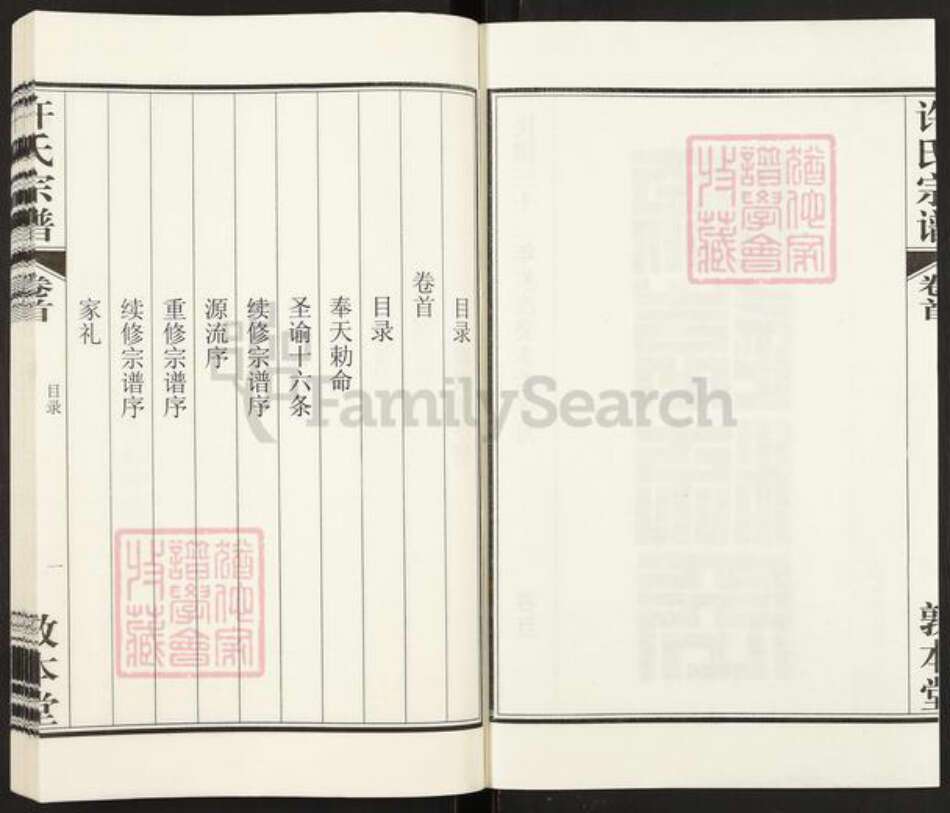 许氏宗谱
卷首
敦本堂
目录
卷首
目录
奉天勅命
圣谕十六条
续修宗谱序
源流序
重修宗谱序
续修宗谱序
家礼
许氏宗谱
卷首
目录
一
敦本堂
譜學會
收藏
譜學會
收藏
FamilySearch